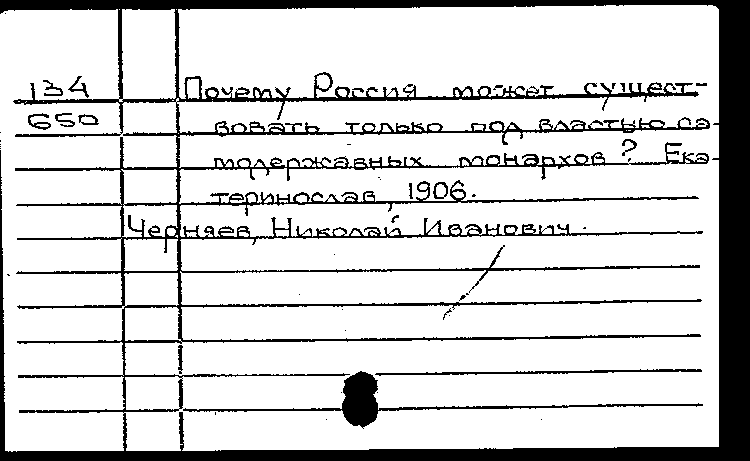 134 Почему Россия может сущест-
650 вовать только под властью са-
модержавных монархов? Ека-
теринослав, 1906.
Черняев, Николай Иванович.